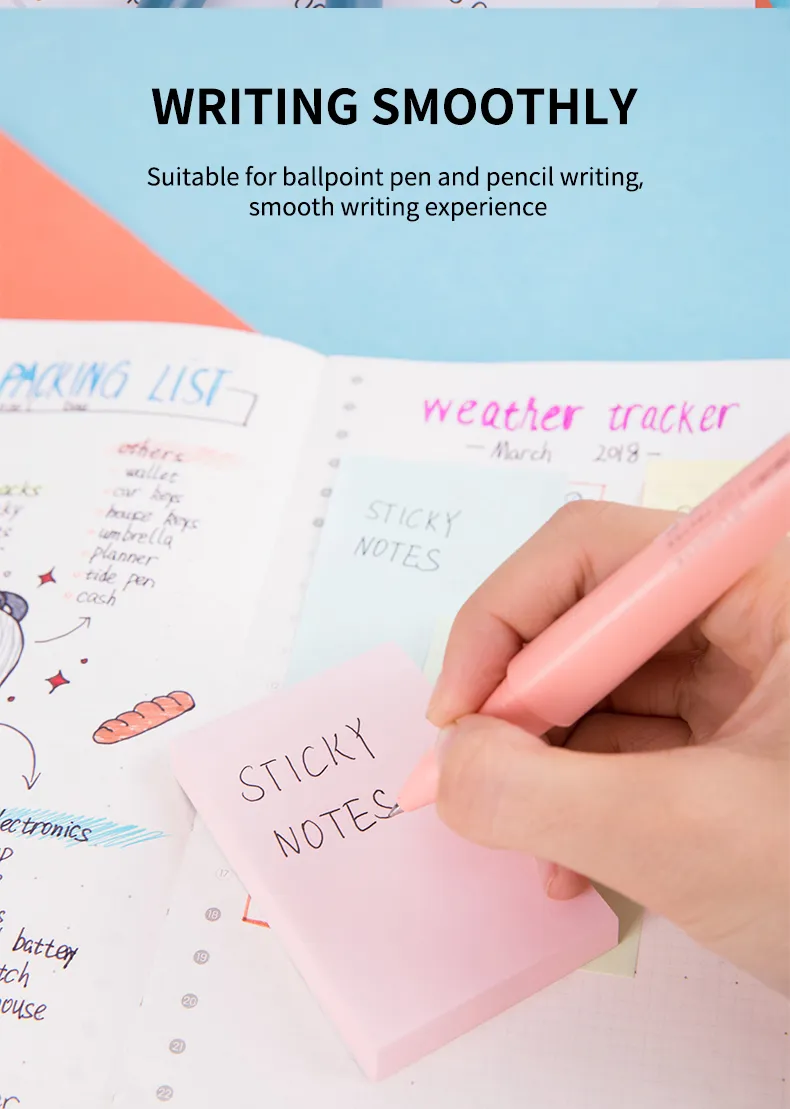 WRITING SMOOTHLY
Suitable for ballpoint pen and pencil writing,
smooth writing experience
PACKING LIST
others
wallet
car keys
house keys
umbrella
planner
tide pen
cash
battery
weather tracker
— March 2018 —
STICKY
NOTES
STICKY
NOTES
17
18
19
20
21
22